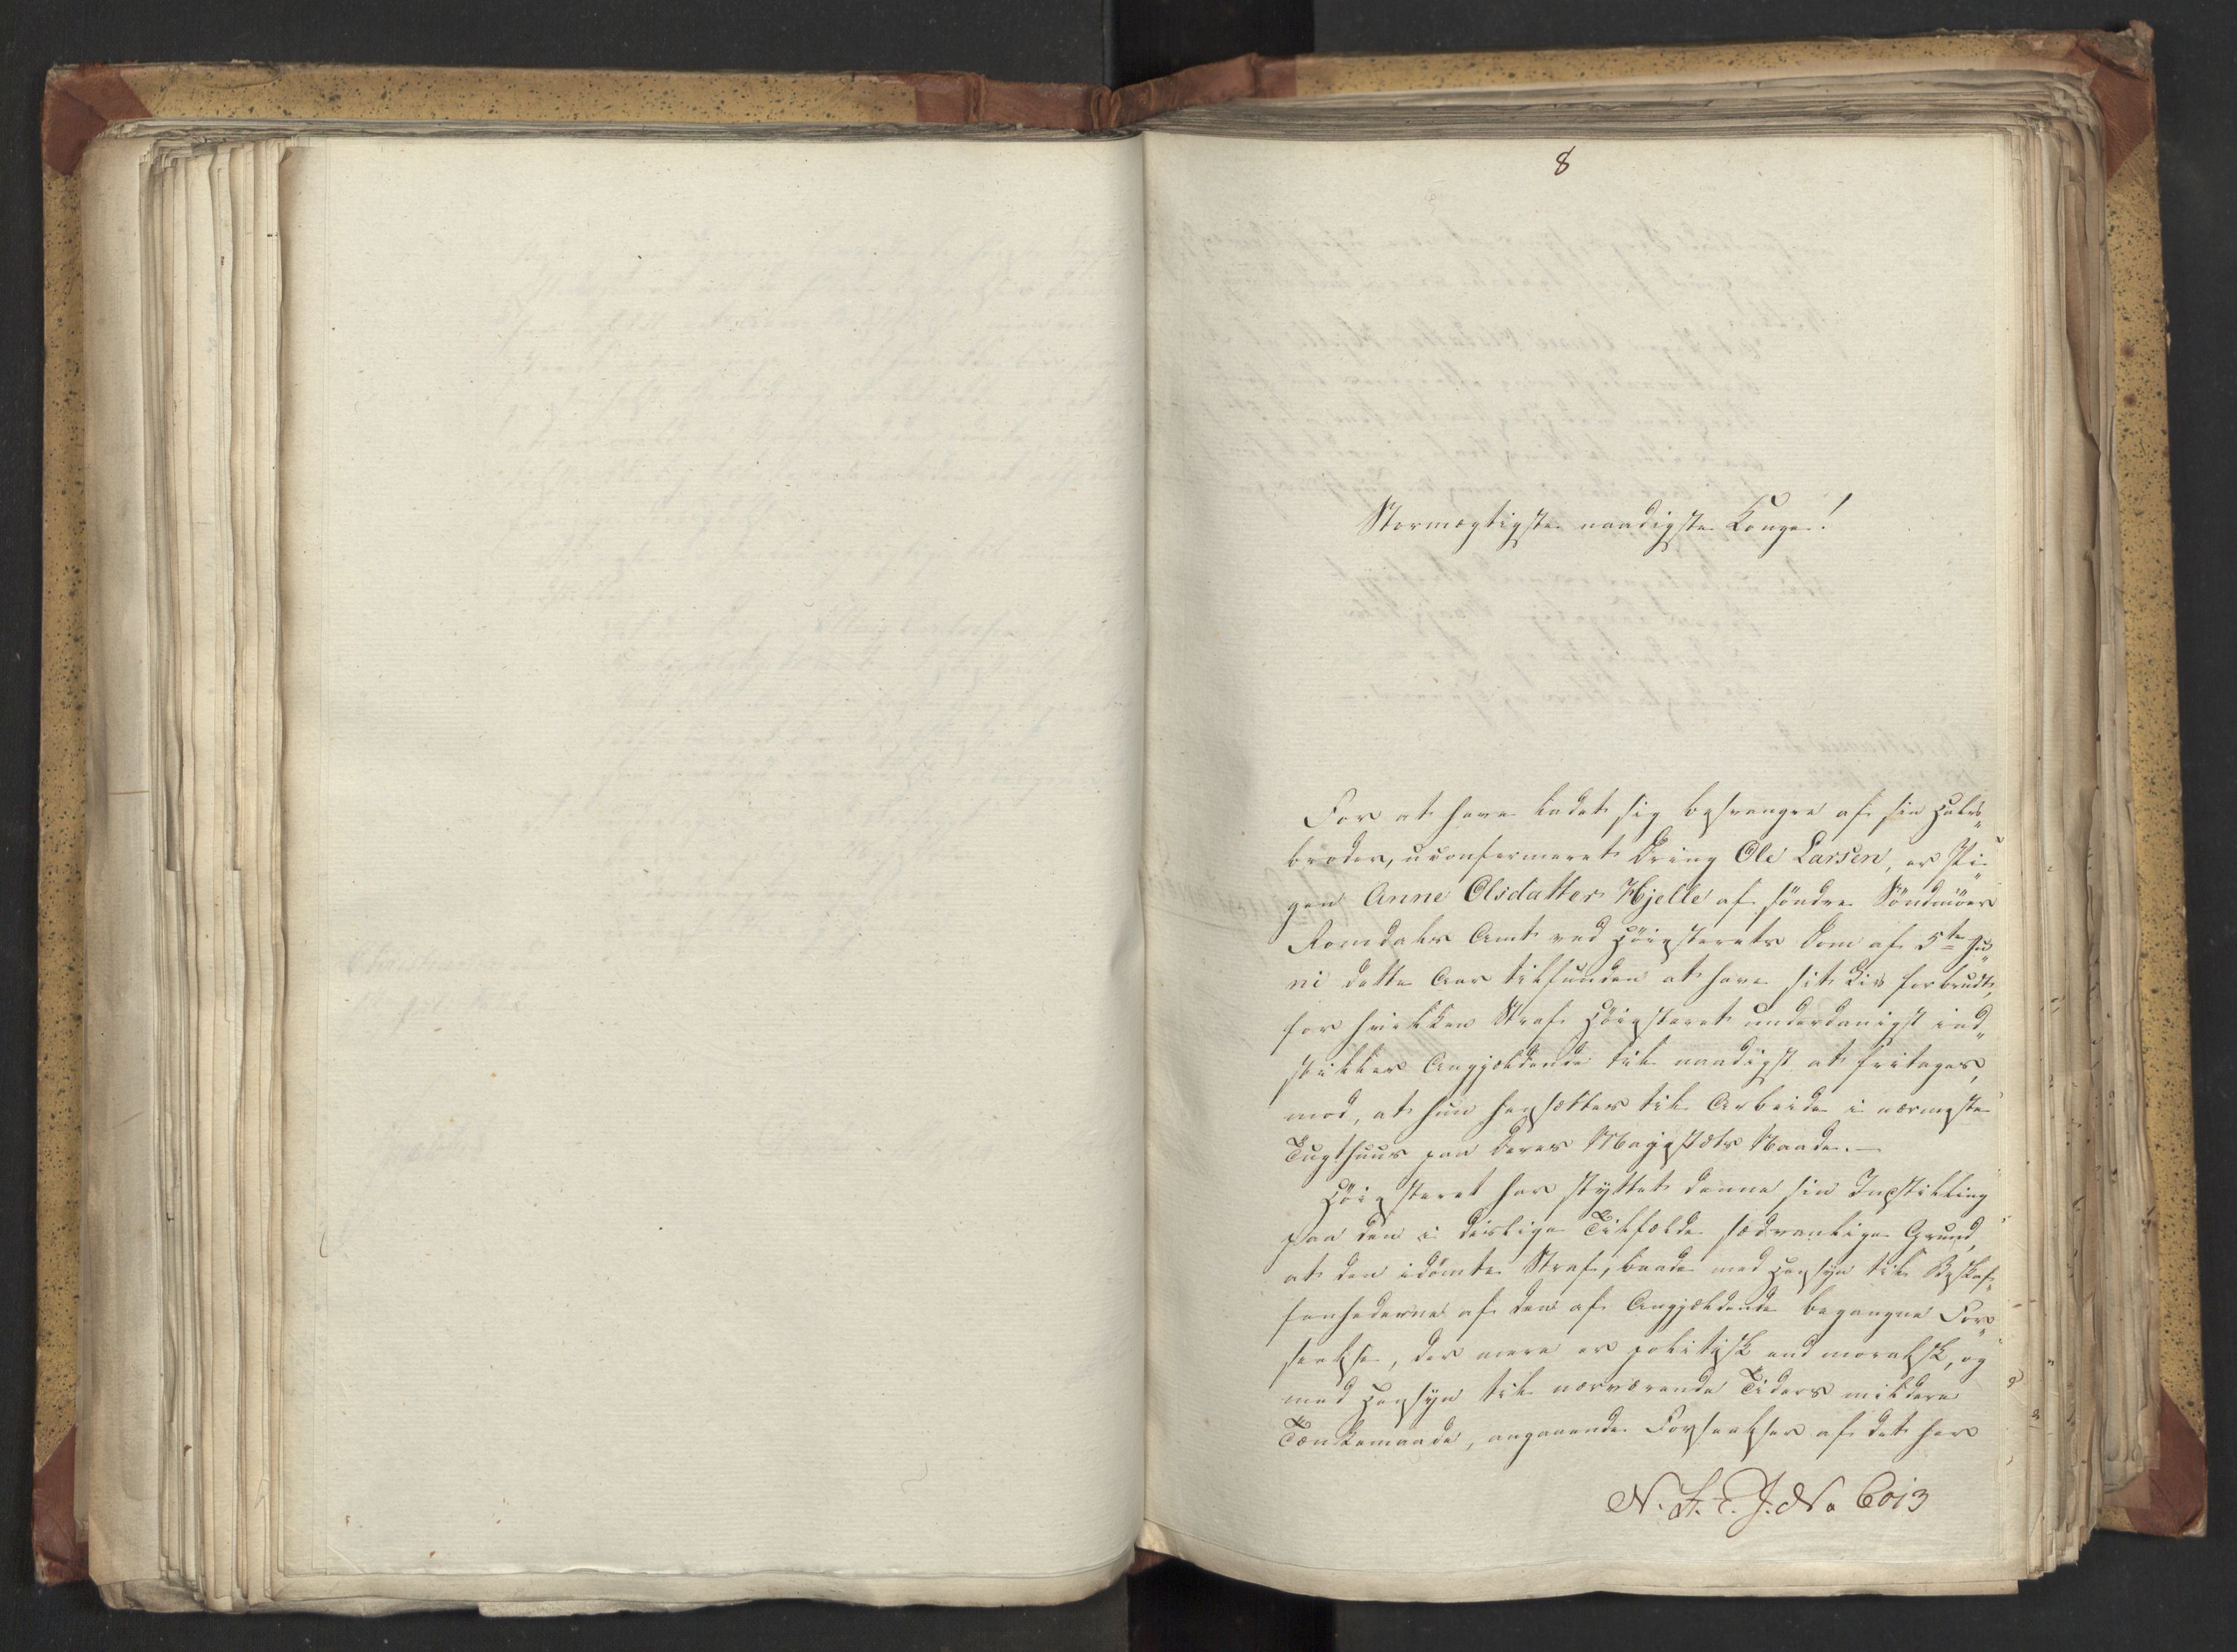 8
Stormægtigste naadigste Konge!
For at have ladet sig besvangre af sin Halv„
broder, uconfirmeret Dreng Ole Larsen, er Pi„
gen Anne Olsdatter Hjelle af söndre Söndmöer
Romsdals Amt ved Höiesterets Dom af 5te Ju„
ni dette Aar tilfunden at have sit Liv forbrudt,
for hvilken Straf Höiesteret underdanigst ind„
stiller Angjældende til naadigst at fritages,
mod, at hun hensættes til Arbeide i nærmeste
Tugthuus paa Deres Majestæts Naade.—
Höiesteret har støttet denne sin Instilling
paa den i deslige Tilfælde sædvanlige Grund,
at den idömte Straf, baade med Hensyn til Beskaf„
fenhederne af den af Angjældende begangne For„
seelse, der mere er politisk end moralsk, og
med Hensyn til nærværende Tiders mildere
Tænkemaade, angaaende Forseelser af det her
No 6013